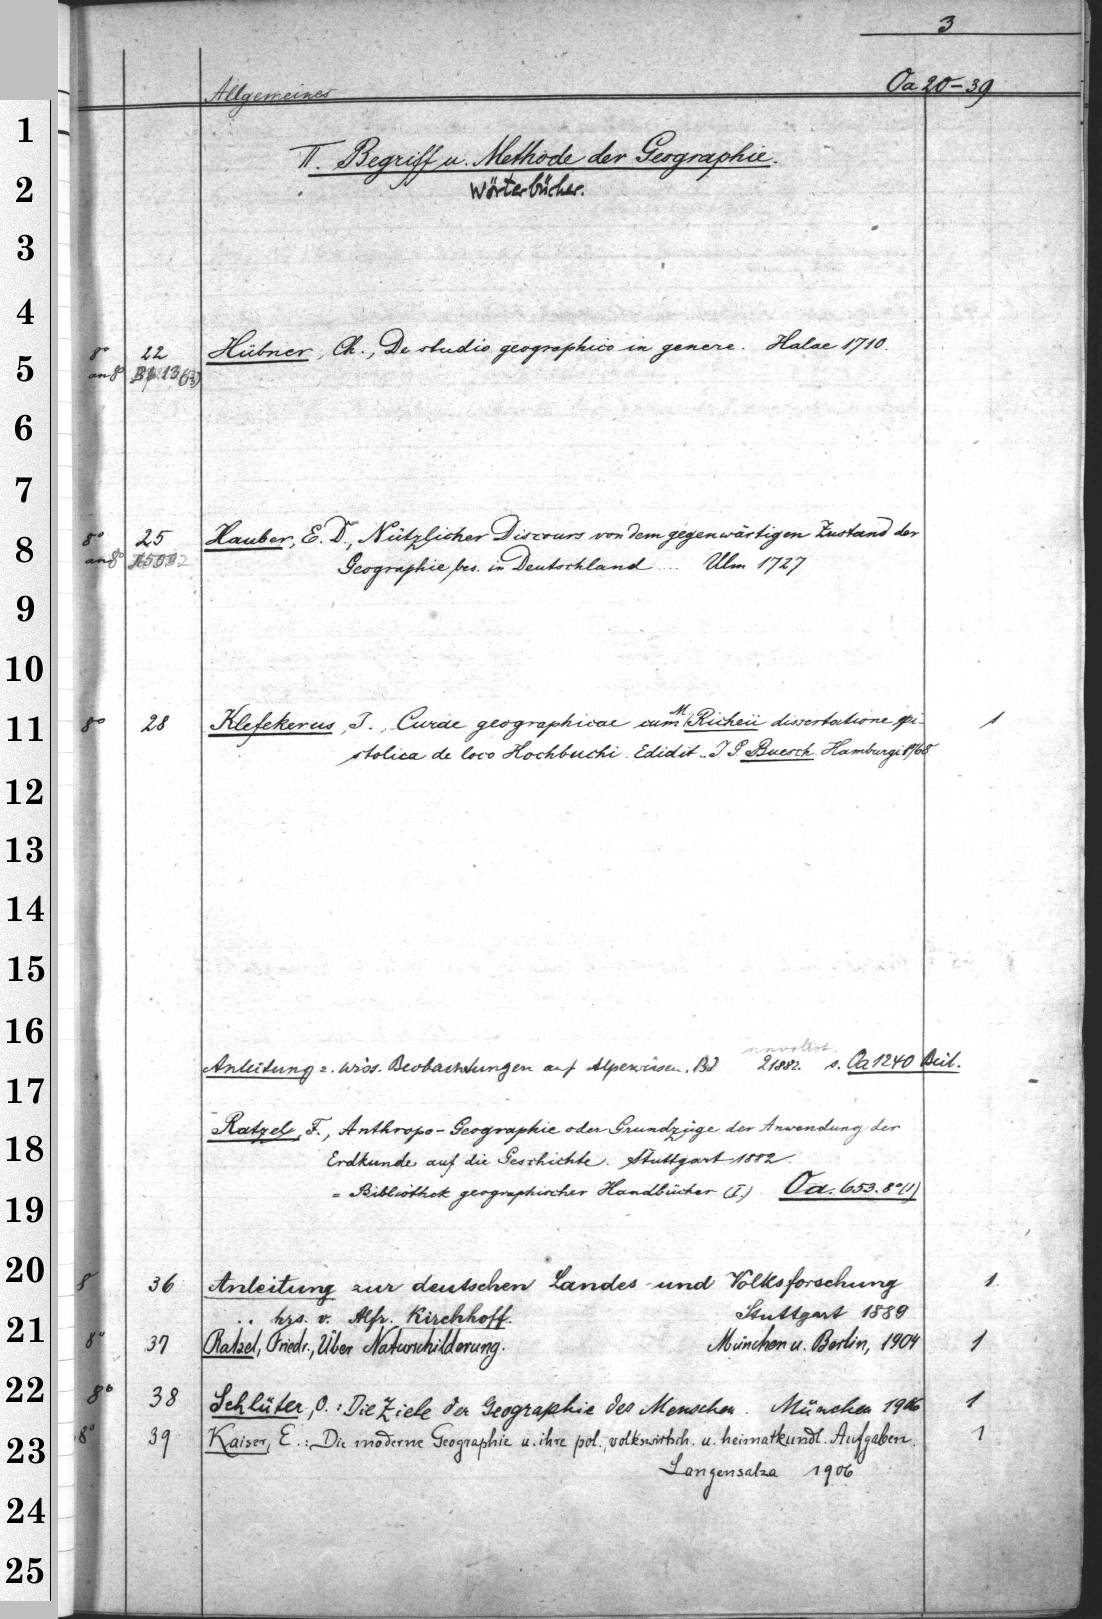 3
Allgemeines Oa 20-39
II. Begriff u. Methode der Geographie.
Wörterbücher.
8° 22 Hübner, Ch., De studio geographico in genere. Halae 1710.
an 8°
8° 25 Hauber, E. D., Nützlicher Discours von dem gegenwärtigen Zustand der
an 8° Geographie bes. in Deutschland .... Ulm 1727
8° 28 Klefekerus, J., Curae geographicae cum M. Richeii dissertatione epi- 1
stolica de loco Hochbuchi. Edidit .. J G Buesch. Hamburgi 1768
unvollst.
Anleitung z. wiss. Beobachtungen auf Alpenreisen. Bd 2 1882. s. Oa 1240 Beil.
Ratzel, F., Anthropo-Geographie oder Grundzüge der Anwendung der
Erdkunde auf die Geschichte. Stuttgart 1882.
= Bibliothek geographischer Handbücher (I.) Oa. 653. 8° (1)
8 36 Anleitung zur deutschen Landes- und Volksforschung 1.
.. hrs. v. Alfr. Kirchhoff. Stuttgart 1889
8° 37 Ratzel, Friedr., Über Naturschilderung. München u. Berlin, 1904 1
8° 38 Schlüter, O.: Die Ziele der Geographie des Menschen. München 1906 1
8° 39 Kaiser, E.: Die moderne Geographie u. ihre pol., volkswirtsch. u. heimatkundl. Aufgaben. 1
Langensalza 1906
1
2
3
4
5
6
7
8
9
10
11
12
13
14
15
16
17
18
19
20
21
22
23
24
25